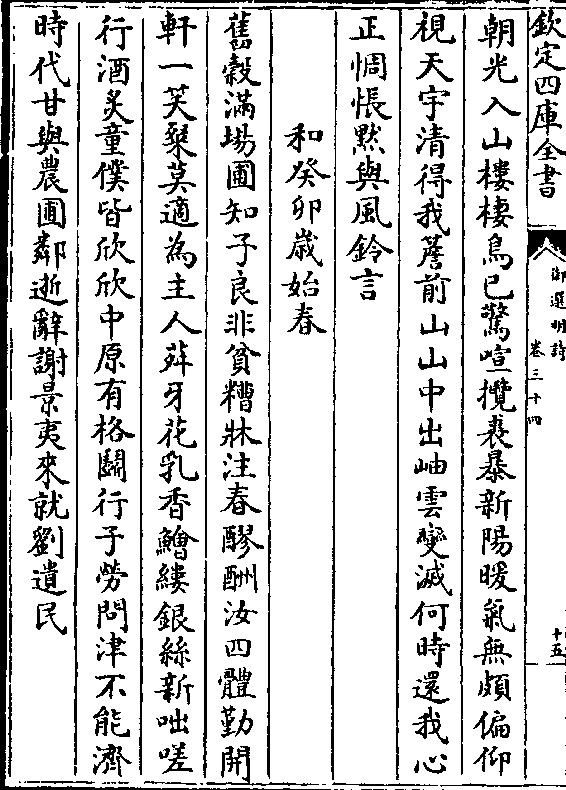 欽定四庫全書
御選明詩
卷三十四
十五
朝光入山樓棲鳥已驚喧攬裘暴新陽暖氣無頗偏仰
視天宇清得我簷前山山中出岫雲變滅何時還我心
正惆悵默與風鈴言
和癸卯歲始春
舊穀滿場圃知子良非貧糟牀注春醪酬汝四體勤開
軒一笑粲莫適為主人蒓牙花乳香鱠縷銀絲新咄嗟
行酒炙童僕皆欣欣中原有格鬭行子勞問津不能濟
時代甘與農圃鄰逝辭謝景夷來就劉遺民